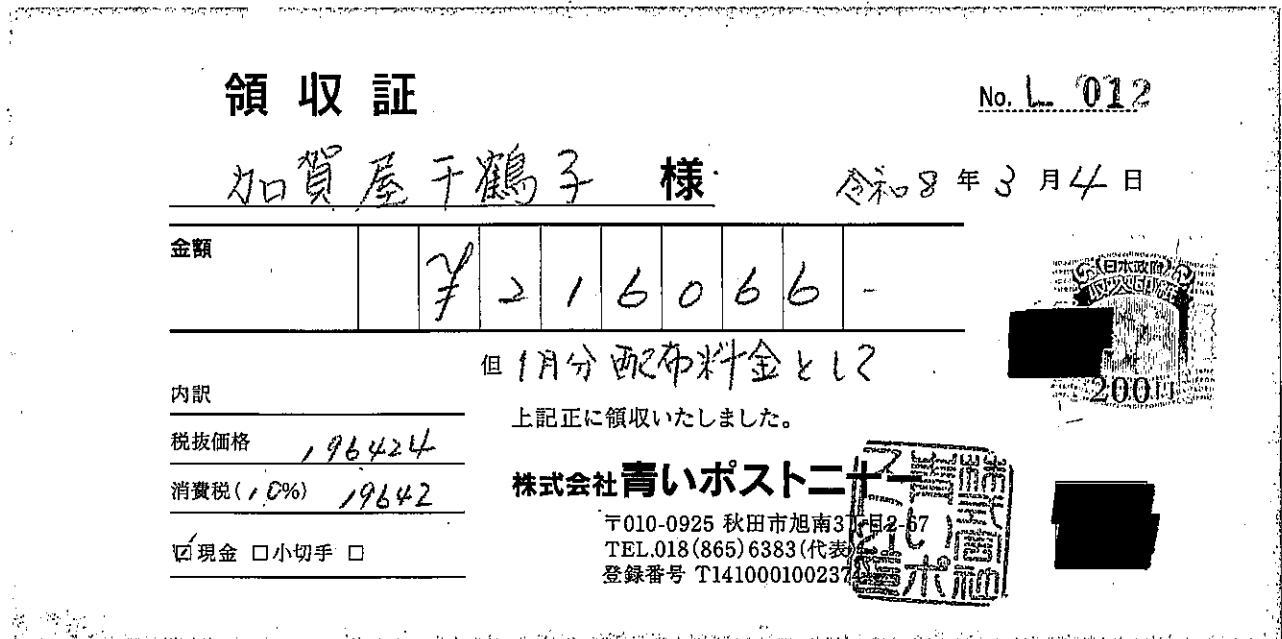 領収証
No. L 012
加賀屋千鶴子 様
令和8年3月4日
金額 ¥216066-
但 1月分配布料金として
上記正に領収いたしました。
内訳
税抜価格 196424
消費税(10%) 19642
☑現金 □小切手 □
株式会社青いポストニュー
〒010-0925 秋田市旭南3丁目2-67
TEL.018(865)6383(代表)
登録番号 T141000100237
日本政府
収入印紙
200円